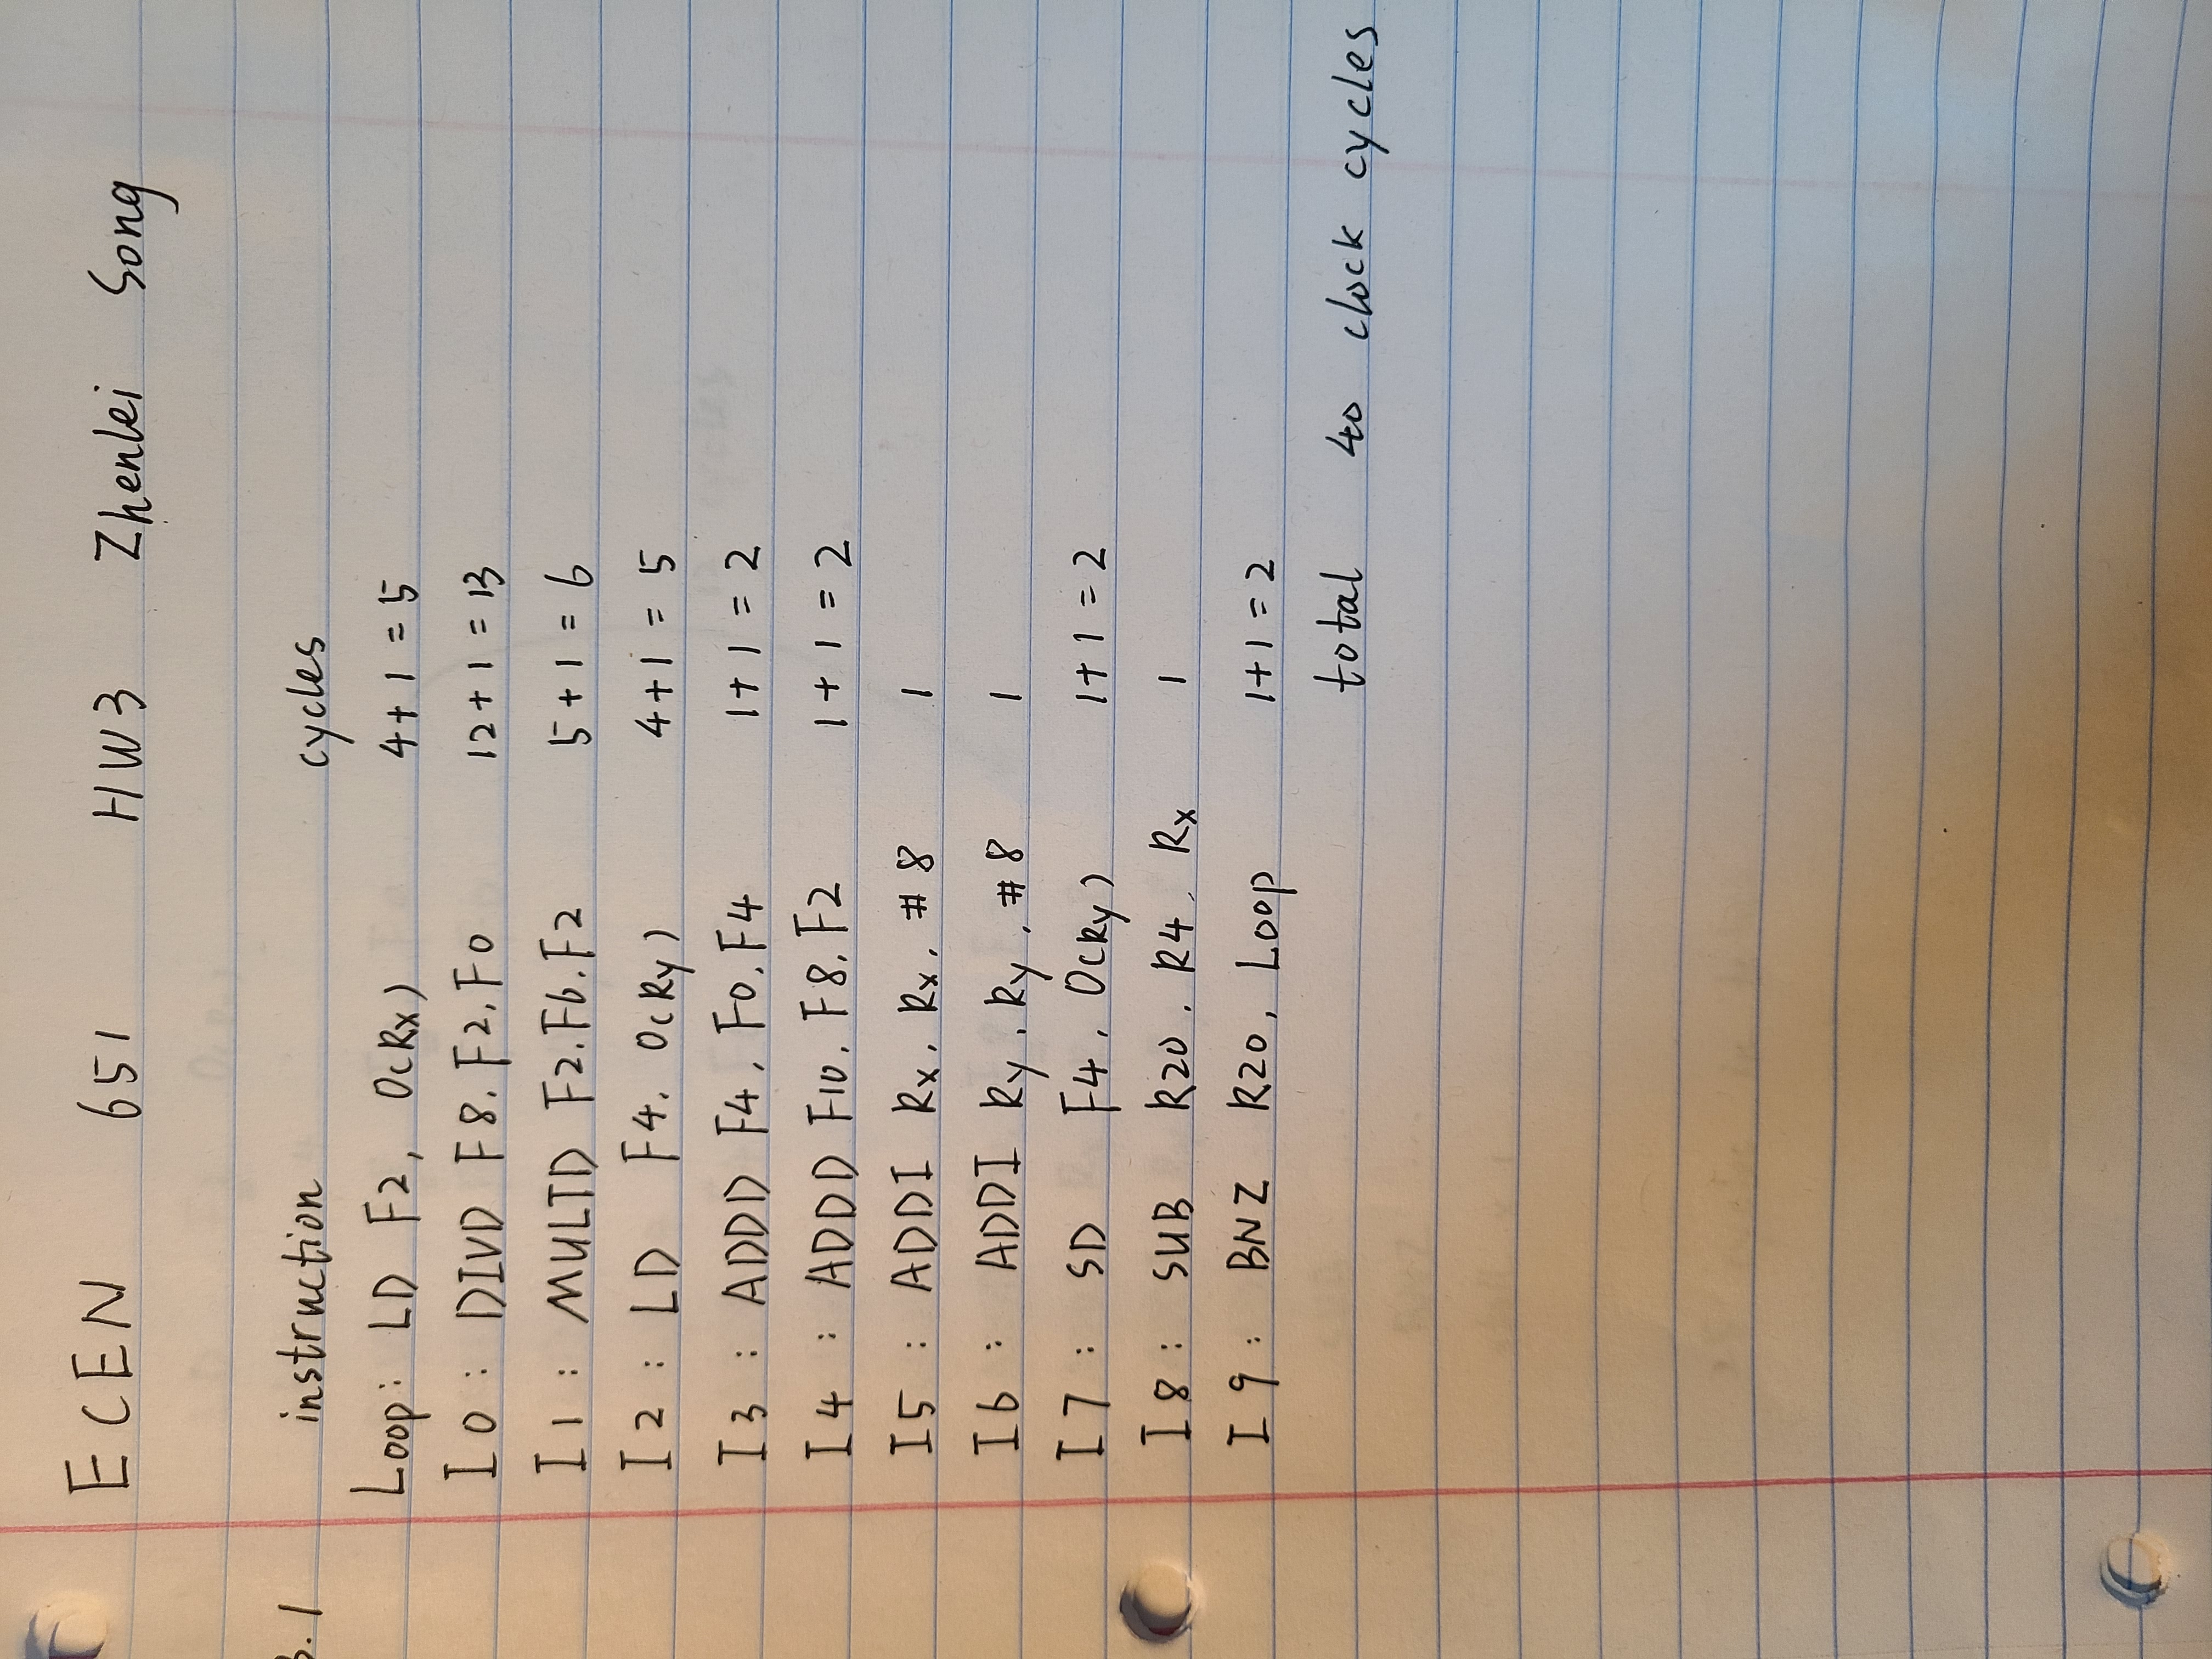 ECEN 651 HW3 Zhenlei Song
3.1 instruction cycles
Loop: LD F2, 0(Rx) 4+1=5
I0: DIVD F8, F2, F0 12+1=13
I1: MULTD F2, F6, F2 5+1=6
I2: LD F4, 0(Ry) 4+1=5
I3: ADDD F4, F0, F4 1+1=2
I4: ADDD F10, F8, F2 1+1=2
I5: ADDI Rx, Rx, #8 1
I6: ADDI Ry, Ry, #8 1
I7: SD F4, 0(Ry) 1+1=2
I8: SUB R20, R4, Rx 1
I9: BNZ R20, Loop 1+1=2
total 40 clock cycles